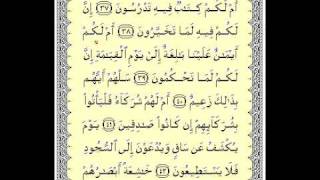 أَمْ لَكُمْ كِتَٰبٌ فِيهِ تَدْرُسُونَ ٣٧ إِنَّ
لَكُمْ فِيهِ لَمَا تَخَيَّرُونَ ٣٨ أَمْ لَكُمْ
أَيْمَٰنٌ عَلَيْنَا بَٰلِغَةٌ إِلَىٰ يَوْمِ الْقِيَٰمَةِ إِنَّ
لَكُمْ لَمَا تَحْكُمُونَ ٣٩ سَلْهُمْ أَيُّهُم
بِذَٰلِكَ زَعِيمٌ ٤٠ أَمْ لَهُمْ شُرَكَاءُ فَلْيَأْتُوا
بِشُرَكَائِهِمْ إِن كَانُوا صَٰدِقِينَ ٤١ يَوْمَ
يُكْشَفُ عَن سَاقٍ وَيُدْعَوْنَ إِلَى السُّجُودِ
فَلَا يَسْتَطِيعُونَ ٤٢ خَٰشِعَةً أَبْصَٰرُهُمْ